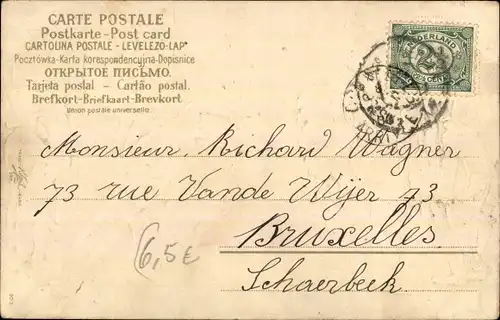 CARTE POSTALE
Postkarte - Post card
CARTOLINA POSTALE - LEVELEZŐ-LAP
Pocztówka - Karta korespondencyjna - Dopisnice
ОТКРЫТОЕ ПИСЬМО.
Tarjeta postal - Cartão postal.
Brefkort - Briefkaart - Brevkort
Union postale universelle.
NEDERLAND
2½
CENT
4R-5V
Monsieur Richard Wagner
73 rue Vande Wijer 73
Bruxelles
Schaerbeek
6,5€